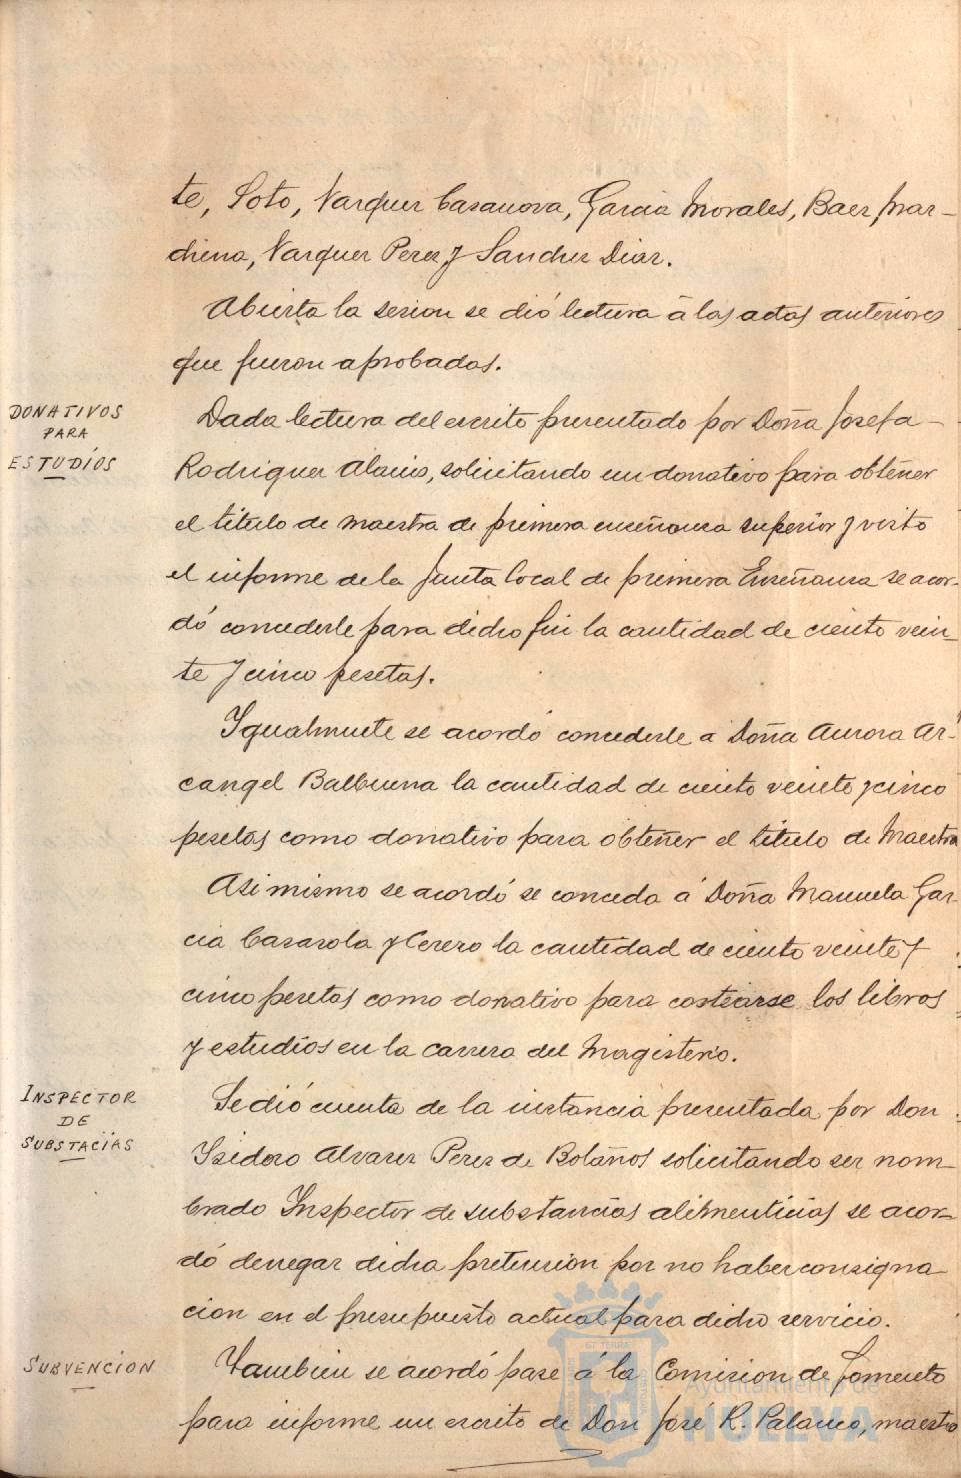 te, Soto, Vazquez Casanova, Garcia Morales, Baez, Mar-
chena, Vazquez Perez, y Sanchez Diaz.
Abierta la sesion se dió lectura á las actas anteriores
que fueron aprobadas.
DONATIVOS
PARA
ESTUDIOS
Dada lectura del escrito presentado por Doña Josefa
Rodriguez Alanis, solicitando un donativo para obtener
el titulo de maestra de primera enseñanza superior y visto
el informe de la Junta local de primera Enseñanza se acor-
dó concederle para dicho fin la cantidad de ciento vein-
te y cinco pesetas.
Igualmente se acordó concederle a Doña Aurora Ar-
cangel Balbuena la cantidad de ciento veinte y cinco
pesetas como donativo para obtener el titulo de Maestra
Asi mismo se acordó se conceda á Doña Manuela Gar-
cia Casasola y Cerero la cantidad de ciento veinte y
cinco pesetas como donativo para costearse los libros
y estudios en la carrera del Magisterio.
INSPECTOR
DE
SUBSTACIAS
Se dió cuenta de la instancia presentada por Don
Ysidoro Alvarez Perez de Bolaños solicitando ser nom-
brado Ynspector de substancias alimenticias se acor-
dó denegar dicha pretension por no haber consigna
cion en el presupuesto actual para dicho servicio.
SUBVENCION
Tambien se acordó pase á la Comision de Fomento
para informe un escrito de Don José R. Palanco, maestro
Ayuntamiento de
HUELVA